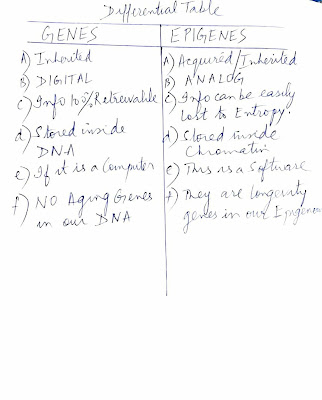 Differential Table
GENES
EPIGENES
A) Inherited
B) DIGITAL
c) Info 100% Retrievable
d) Stored inside
DNA
e) If it is a Computer
f) NO Aging Genes
in our DNA
A) Acquired/Inherited
B) ANALOG
c) Info can be easily
lost to Entropy.
d) Stored inside
Chromatin
e) This is a Software
f) They are longevity
genes in our Epigenom